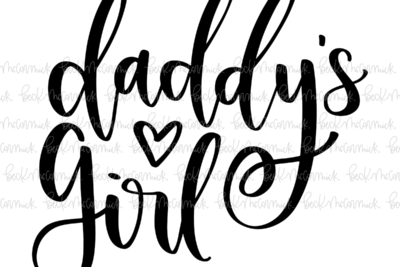 daddy's
girl